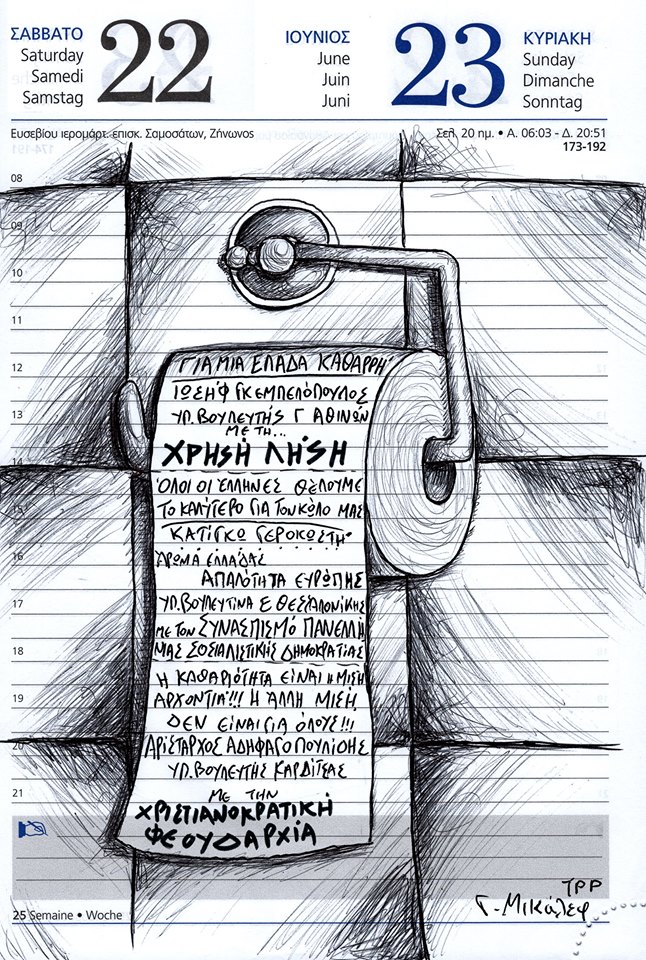 ΣΑΒΒΑΤΟ
Saturday
Samedi
Samstag
22
ΙΟΥΝΙΟΣ
June
Juin
Juni
23
ΚΥΡΙΑΚΗ
Sunday
Dimanche
Sonntag
Ευσεβίου ιερομάρτ. επισκ. Σαμοσάτων, Ζήνωνος
Σελ. 20 ημ. • Α. 06:03 - Δ. 20:51
173-192
08
09
10
11
12
13
14
15
16
17
18
19
20
21
ΓΙΑ ΜΙΑ ΕΛΑΔΑ ΚΑΘΑΡΡΗ
ΙΩΣΗΦ ΓΚΕΜΠΕΛΟΠΟΥΛΟΣ
ΥΠ. ΒΟΥΛΕΥΤΗΣ Γ ΑΘΙΝΩΝ
ΜΕ ΤΗ...
ΧΡΗΣΗ ΛΗΣΗ
ΌΛΟΙ ΟΙ ΈΛΛΗΝΕΣ ΘΕΛΟΥΜΕ
ΤΟ ΚΑΛΥΤΕΡΟ ΓΙΑ ΤΟΝ ΚΟΛΟ ΜΑΣ
ΚΑΤΙΓΚΩ ΓΕΡΟΚΩΣΤΗ
ΆΡΩΜΑ ΕΛΛΑΔΑΣ
ΑΠΑΛΟΤΗΤΑ ΕΥΡΩΠΗΣ
ΥΠ. ΒΟΥΛΕΥΤΙΝΑ Ε ΘΕΣΣΑΛΟΝΙΚΗΣ
ΜΕ ΤΟΝ ΣΥΝΑΣΠΙΣΜΟ ΠΑΝΕΛΛΗ
ΝΙΑΣ ΣΟΣΙΑΛΙΣΤΙΚΗΣ ΔΗΜΟΚΡΑΤΙΑΣ
Η ΚΑΘΑΡΙΟΤΗΤΑ ΕΙΝΑΙ Η ΜΙΣΗ
ΑΡΧΟΝΤΙΑ!!! Η ΆΛΛΗ ΜΙΣΗ
ΔΕΝ ΕΙΝΑΙ ΓΙΑ ΌΛΟΥΣ!!!
ΑΡΙΣΤΑΡΧΟΣ ΑΔΗΦΑΓΟΠΟΥΛΙΔΗΣ
ΥΠ. ΒΟΥΛΕΥΤΗΣ ΚΑΡΔΙΤΣΑΣ
ΜΕ ΤΗΝ
ΧΡΙΣΤΙΑΝΟΚΡΑΤΙΚΗ
ΦΕΟΥΔΑΡΧΙΑ
TPP
Γ. ΜΙΚΑΛΕΦ
25 Semaine • Woche